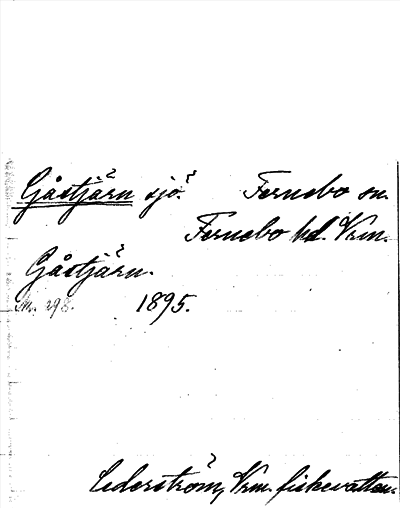 Gåstjärn sjö. Fernebo sn.
Fernebo hd. Vrm.
Gåstjärn.
298. 1895.
Cederström, Vrm. fiskevatten.